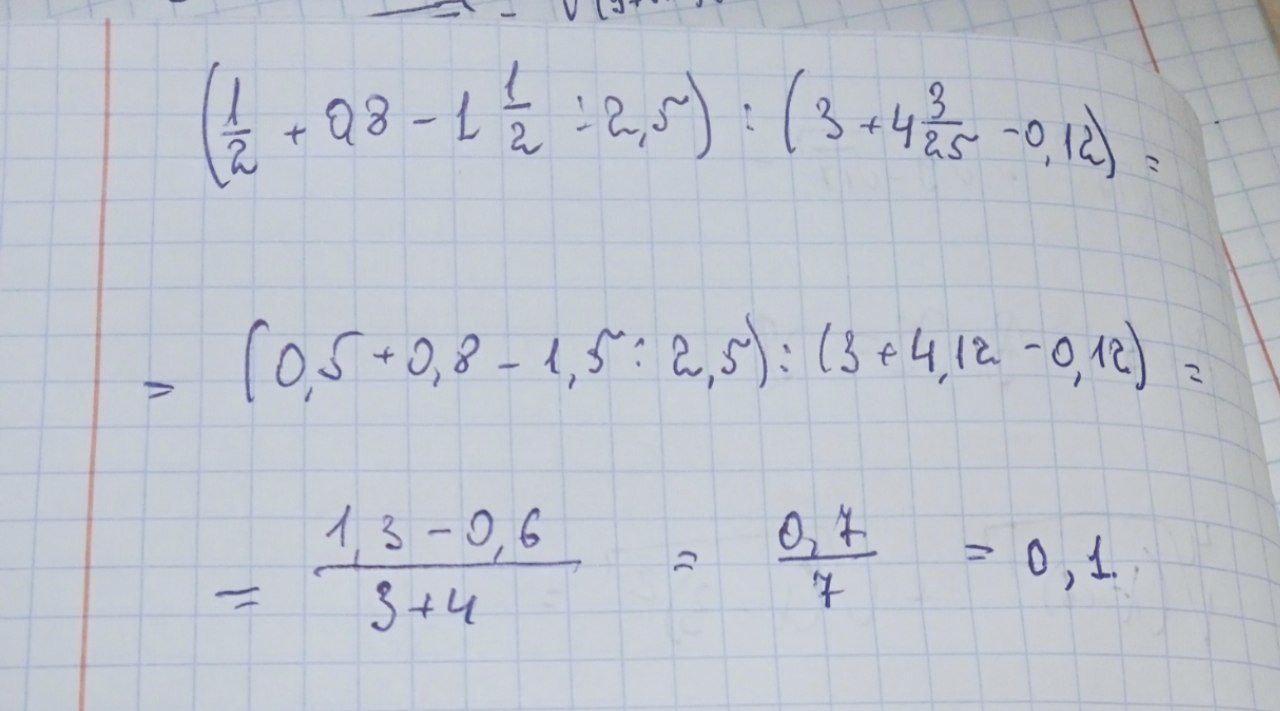 (1/2 + 0,8 - 1 1/2 : 2,5) : (3 + 4 3/25 - 0,12) =
= (0,5 + 0,8 - 1,5 : 2,5) : (3 + 4,12 - 0,12) =
= (1,3 - 0,6)/(3 + 4) = 0,7/7 = 0,1.